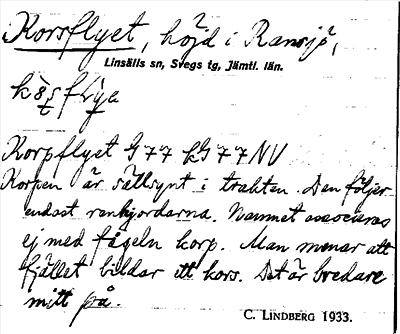 Korsflyet, höjd i Ransjö,
Linsälls sn, Svegs tg, Jämtl. län.
Korpflyet G 77 kG 77 NV
Korpen är sällsynt i trakten. Den följer
endast renhjordarna. Namnet associeras
ej med fågeln korp. Man menar att
fjället bildar ett kors. Det är bredare
mitt på.
C. LINDBERG 1933.